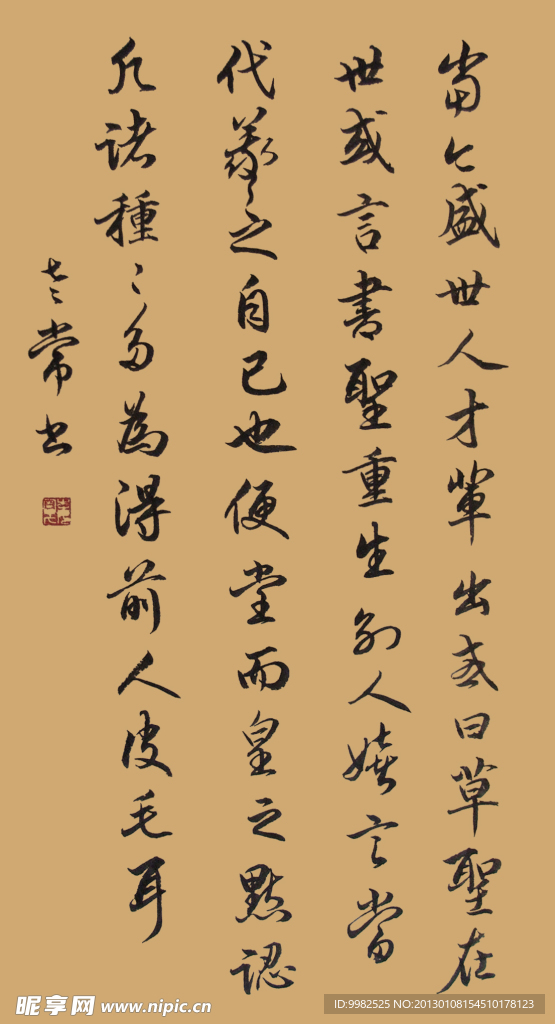 當今盛世人才輩出或曰草聖在
世或言書聖重生別人嬉言當
代羲之自己也便堂而皇之默認
凡諸種種多為得前人皮毛耳
常書
昵享网 www.nipic.cn
ID:9982525 NO:20130108154510178123